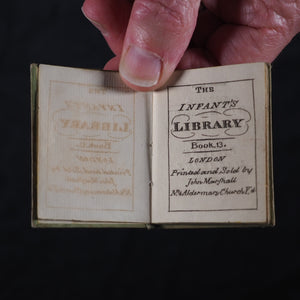 THE
INFANT'S
LIBRARY
Book.13.
LONDON
Printed and Sold by
John Marshall
No 4 Aldermary Church Yd